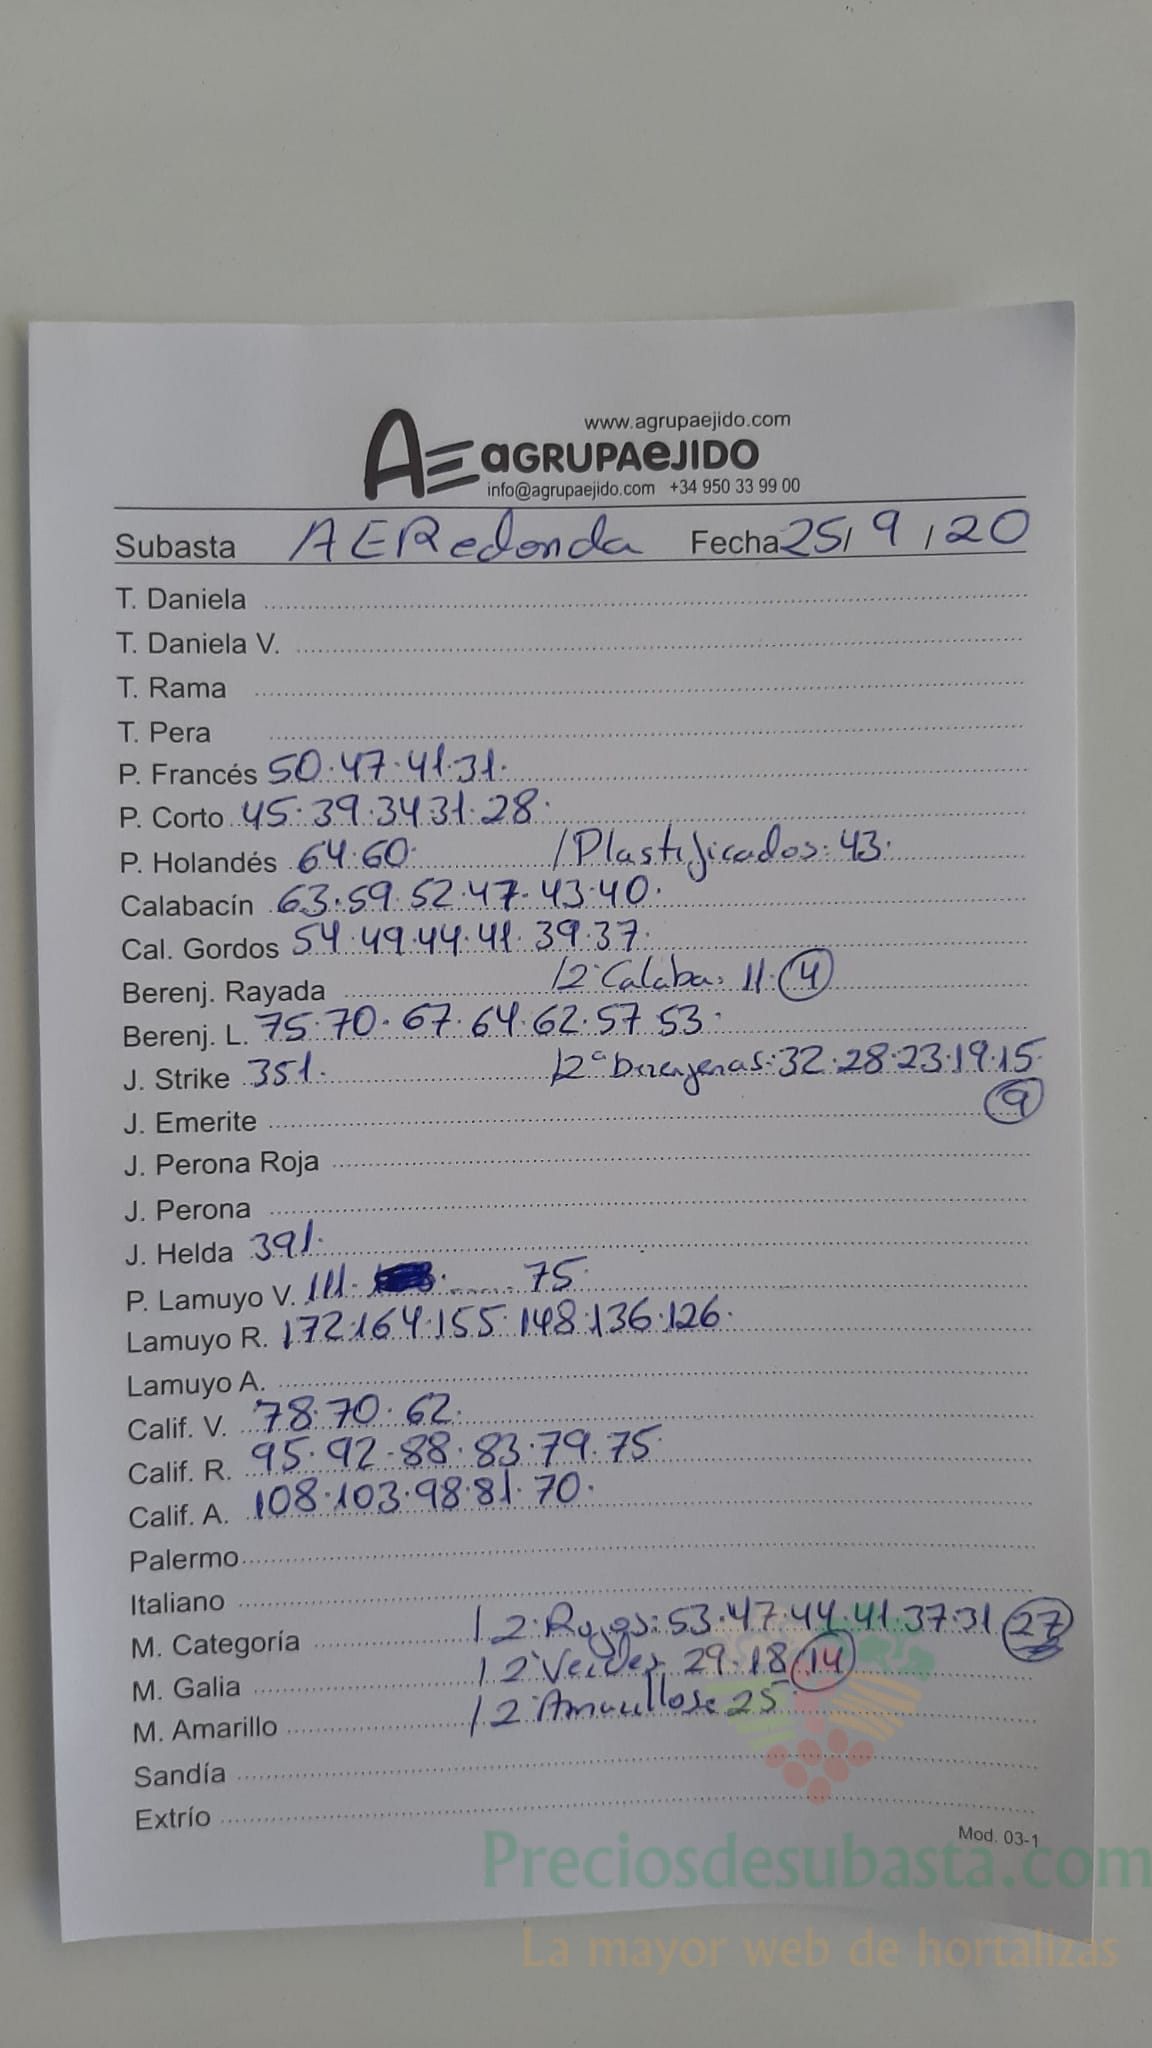 www.agrupaejido.com
AE aGRUPAeJIDO
info@agrupaejido.com +34 950 33 99 00
Subasta AERedonda Fecha 25/9/20
T. Daniela
T. Daniela V.
T. Rama
T. Pera
P. Francés 50.47.41.31.
P. Corto 45.39.34.31.28.
P. Holandés 64.60. /Plastificados: 43.
Calabacín 63.59.52.47.43.40.
Cal. Gordos 54.49.44.41.39.37.
Berenj. Rayada /2ª Calaba: 11.4
Berenj. L. 75.70.67.64.62.57.53.
J. Strike 351. /2ª Berenjenas: 32.28.23.19.15.
9
J. Emerite
J. Perona Roja
J. Perona
J. Helda 391.
P. Lamuyo V. 111. ...... 75.
Lamuyo R. 172.164.155.148.136.126.
Lamuyo A.
Calif. V. 78.70.62.
Calif. R. 95.92.88.83.79.75.
Calif. A. 108.103.98.81.70.
Palermo
Italiano
M. Categoría /2ª Rojos: 53.47.44.41.37.31 27
M. Galia /2ª Verdes 29.18.14
M. Amarillo /2ª Amarillos: 25.
Sandía
Extrío
Mod. 03-1
Preciosdesubasta.com
La mayor web de hortalizas